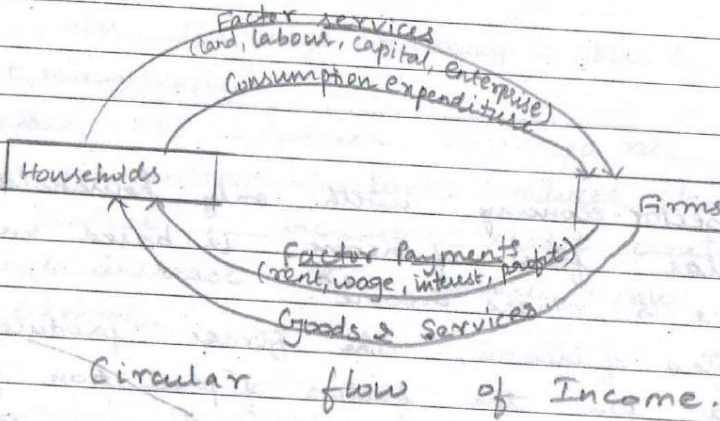 Factor services
(land, labour, capital, enterprise)
Consumption expenditure
Households
Firms
Factor Payments
(rent, wage, interest, profit)
Goods & Services
Circular flow of Income.